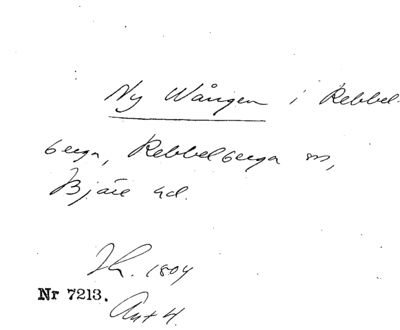 Ny Wången i Rebbel-
berga, Rebbelberga sn,
Bjäre hd.
Jh. 1804
Nr 7213.
Ant 4.